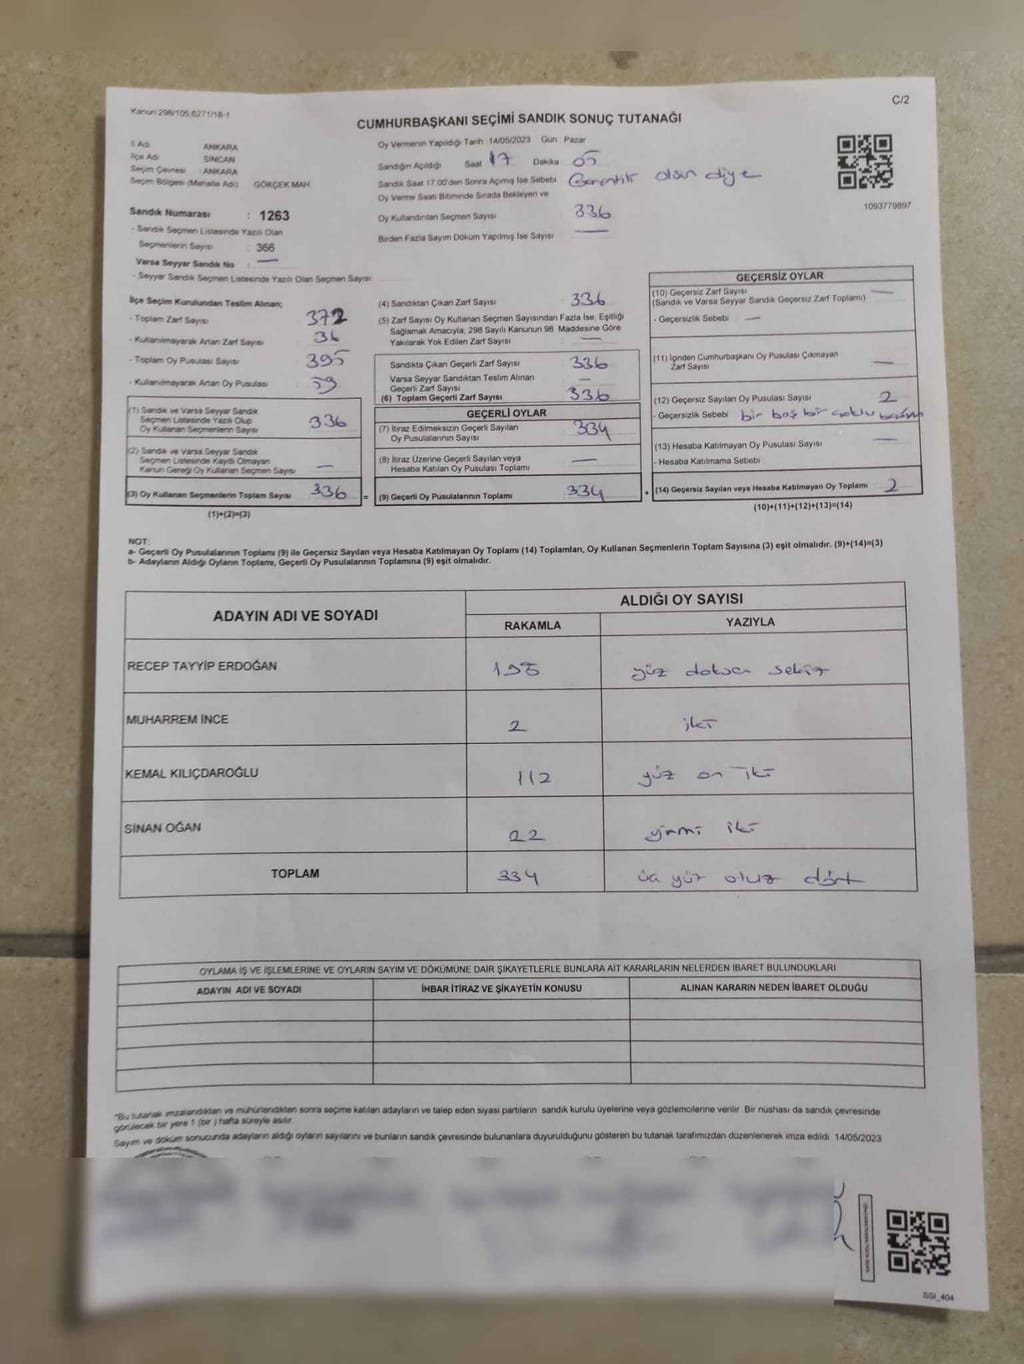 Kanun:298/105;6271/18-1
C/2
CUMHURBAŞKANI SEÇİMİ SANDIK SONUÇ TUTANAĞI
İl Adı ANKARA
İlçe Adı SİNCAN
Seçim Çevresi : ANKARA
Seçim Bölgesi (Mahalle Adı) GÖKÇEK MAH.
Sandık Numarası : 1263
- Sandık Seçmen Listesinde Yazılı Olan
Seçmenlerin Sayısı 366
Varsa Seyyar Sandık No : —
- Seyyar Sandık Seçmen Listesinde Yazılı Olan Seçmen Sayısı:
Oy Vermenin Yapıldığı Tarih 14/05/2023 Gün : Pazar
Sandığın Açıldığı Saat 17 Dakika 05
Sandık Saat 17.00'den Sonra Açımış İse Sebebi Garantili olsun diye
Oy Verme Saati Bitiminde Sırada Bekleyen ve
Oy Kullandırılan Seçmen Sayısı 336
Birden Fazla Sayım Döküm Yapılmış İse Sayısı —
1093779897
İlçe Seçim Kurulundan Teslim Alınan;
- Toplam Zarf Sayısı 372
- Kullanılmayarak Artan Zarf Sayısı 36
- Toplam Oy Pusulası Sayısı 395
- Kullanılmayarak Artan Oy Pusulası 59
(1) Sandık ve Varsa Seyyar Sandık
Seçmen Listesinde Yazılı Olup
Oy Kullanan Seçmenlerin Sayısı 336
(2) Sandık ve Varsa Seyyar Sandık
Seçmen Listesinde Kayıtlı Olmayan
Kanun Gereği Oy Kullanan Seçmen Sayısı —
(3) Oy Kullanan Seçmenlerin Toplam Sayısı 336 =
(1)+(2)=(3)
(4) Sandıktan Çıkan Zarf Sayısı 336
(5) Zarf Sayısı Oy Kullanan Seçmen Sayısından Fazla İse, Eşitliği
Sağlamak Amacıyla, 298 Sayılı Kanunun 98. Maddesine Göre
Yakılarak Yok Edilen Zarf Sayısı —
Sandıkta Çıkan Geçerli Zarf Sayısı 336
Varsa Seyyar Sandıktan Teslim Alınan
Geçerli Zarf Sayısı —
(6) Toplam Geçerli Zarf Sayısı 336
GEÇERLİ OYLAR
(7) İtiraz Edilmeksizin Geçerli Sayılan
Oy Pusulalarının Sayısı 334
(8) İtiraz Üzerine Geçerli Sayılan veya
Hesaba Katılan Oy Pusulası Toplamı —
(9) Geçerli Oy Pusulalarının Toplamı 334 +
GEÇERSİZ OYLAR
(10) Geçersiz Zarf Sayısı —
(Sandık ve Varsa Seyyar Sandık Geçersiz Zarf Toplamı)
- Geçersizlik Sebebi —
(11) İçinden Cumhurbaşkanı Oy Pusulası Çıkmayan
Zarf Sayısı —
(12) Geçersiz Sayılan Oy Pusulası Sayısı 2
- Geçersizlik Sebebi bir boş bir çoklu
(13) Hesaba Katılmayan Oy Pusulası Sayısı —
- Hesaba Katılmama Sebebi
(14) Geçersiz Sayılan veya Hesaba Katılmayan Oy Toplamı 2
(10)+(11)+(12)+(13)=(14)
NOT:
a- Geçerli Oy Pusulalarının Toplamı (9) ile Geçersiz Sayılan veya Hesaba Katılmayan Oy Toplamı (14) Toplamları, Oy Kullanan Seçmenlerin Toplam Sayısına (3) eşit olmalıdır. (9)+(14)=(3)
b- Adayların Aldığı Oyların Toplamı, Geçerli Oy Pusulalarının Toplamına (9) eşit olmalıdır.
ADAYIN ADI VE SOYADI ALDIĞI OY SAYISI
RAKAMLA YAZIYLA
RECEP TAYYİP ERDOĞAN 198 yüz doksan sekiz
MUHARREM İNCE 2 iki
KEMAL KILIÇDAROĞLU 112 yüz on iki
SİNAN OĞAN 22 yirmi iki
TOPLAM 334 üç yüz otuz dört
OYLAMA İŞ VE İŞLEMLERİNE VE OYLARIN SAYIM VE DÖKÜMÜNE DAİR ŞİKAYETLERLE BUNLARA AİT KARARLARIN NELERDEN İBARET BULUNDUKLARI
ADAYIN ADI VE SOYADI İHBAR İTİRAZ VE ŞİKAYETİN KONUSU ALINAN KARARIN NEDEN İBARET OLDUĞU
*Bu tutanak imzalandıktan ve mühürlendikten sonra seçime katılan adayların ve talep eden siyasi partilerin sandık kurulu üyelerine veya gözlemcilerine verilir. Bir nüshası da sandık çevresinde
görülecek bir yere 1 (bir) hafta süreyle asılır.
Sayım ve döküm sonucunda adayların aldığı oyların sayılarını ve bunların sandık çevresinde bulunanlara duyurulduğunu gösteren bu tutanak tarafımızdan düzenlenerek imza edildi. 14/05/2023
SGI_404